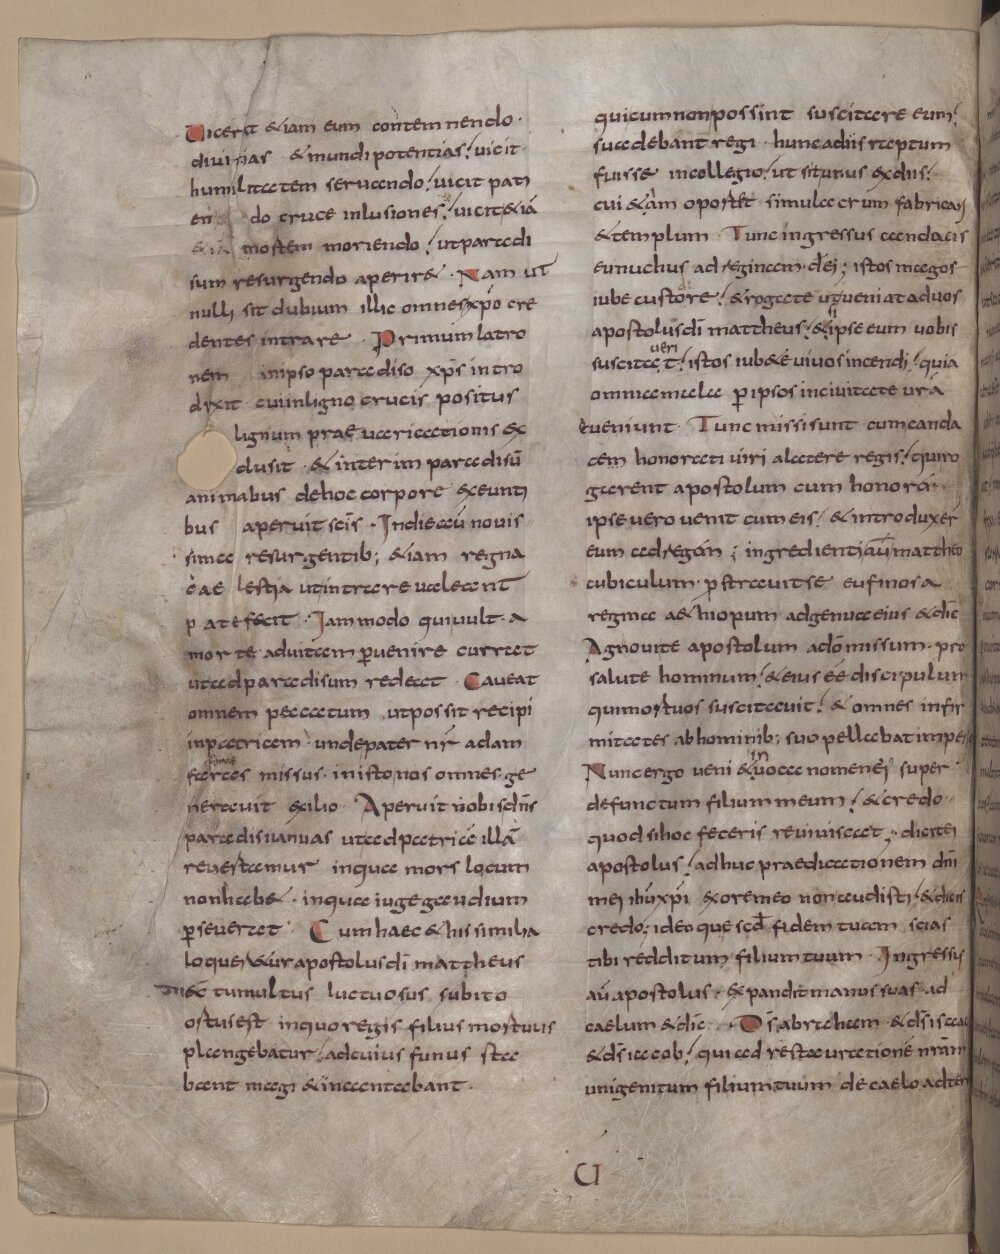 Uicerat &iam eum contemnendo·
diuitias &mundi potentias; uicit
humilitatem seruiendo; uicit pati
en do cruce inlusiones; uicit&iā
&iā mortem moriendo; ut paradi
sum resurgendo aperir& · Nam ut
nulli sit dubium illic omnes xp̄o cre
dentes intrare · Primum latro
nem in ipso paradiso xp̄s intro
dixit cui in ligno crucis positus
lignum prae uaricationis ex
clusit · & interim paradisū
animabus de hoc corpore exeunti
bus aperuit sc̄is · In die aū nouis
simae resurgentib; &iam regna
cae lestia ut intrare ualeant
patefecit · Iam modo qui uult · a
morte ad uitam puenire currat
ut ad paradisum redeat · Caueat
omnem peccatum ut possit recipi
in patriam · unde pater nr̄ adam
foras missus · in isto nos omnes ge
nerauit exilio · Aperuit nobis dn̄s
paradisi ianuas ut ad patriā illā
reuertamur in qua mors locum
non habe& · in qua iuge gaudium
perseuerat · Cum haec & his similia
loquer&ur apostolus dī mattheus
tumultus luctuosus subito
ortus est in quo regis filius mortuus
plangebatur; ad cuius funus sta
bant magi & incantabant ·
qui cum non possint suscitare eum;
suadebant regi · hunc a diis raptum
fuisse in collegio; ut sit unus ex diis;
cui &iam oportet simulacrum fabricari
& templum · Tunc ingressus candacis
eunuchus ad reginam · dic̄ ; istos magos
iube custodire; & rogate ut ueniat ad uos
apostolus dī mattheus; & si ipse eum uobis
suscitauerit; istos iub&e uiuos incendi; quia
omnia mala p ipsos in ciuitate urā
eueniunt · Tunc missi sunt cum canda
cem honorati uiri a latere regis; qui ro
garent apostolum cum honorā ·
ipse uero uenit cum eis; & introduxer̄
eum ad regem ; ingredienti aū mattheo
cubiculum · pstrauit se eufinosa
regina aethiopum ad genua eius & dic̄
Agnouite apostolum a dō missum · pro
salute hominum; & eius eē discipulum
qui mortuos suscitauit; & omnes infir
mitates ab hominib; suo pellebat imperio
Nunc ergo ueni & inuoca nomen ei super
defunctum filium meum; & credo
quod si hoc feceris reuiuiscat · dic ei
apostolus; adhuc praedicationem dn̄i
mei ihū xp̄i ex ore meo non audisti; & dicis
credo; ideoque scd̄ fidem tuam scias
tibi redditum filium tuum · Ingressus
aū apostolus · expandit manus suas ad
caelum & dic · Ds̄ abraham · & ds̄ isaac
& ds̄ iacob; qui ad restaurationē nr̄am
unigenitum filium tuum de caelo ad ter
U